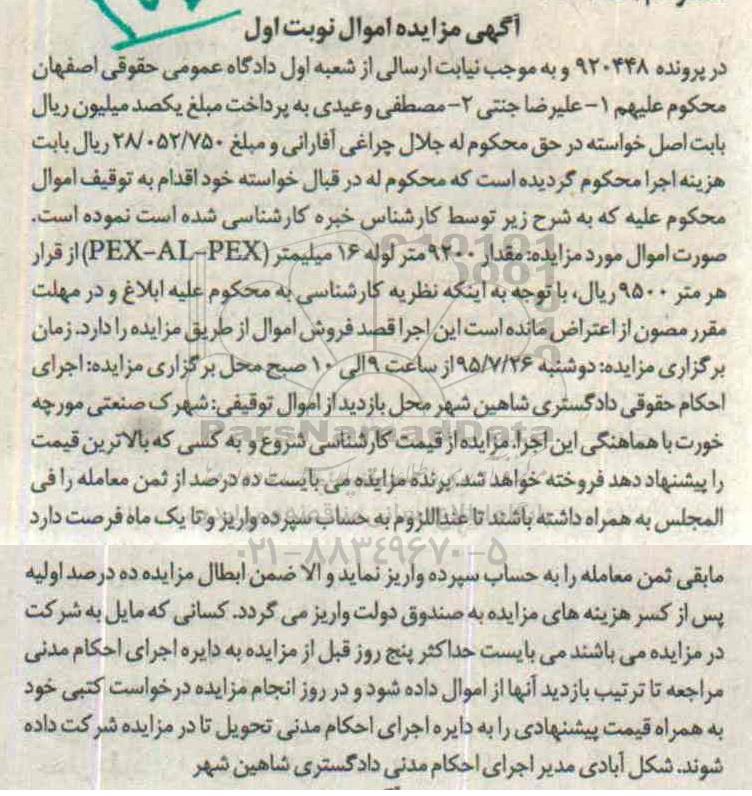 آگهی مزایده اموال نوبت اول
در پرونده ۹۲۰۴۴۸ و به موجب نیابت ارسالی از شعبه اول دادگاه عمومی حقوقی اصفهان
محکوم علیهم ۱- علیرضا جنتی ۲- مصطفی وعیدی به پرداخت مبلغ یکصد میلیون ریال
بابت اصل خواسته در حق محکوم له جلال چراغی آفارانی و مبلغ ۲۸/۰۵۲/۷۵۰ ریال بابت
هزینه اجرا محکوم گردیده است که محکوم له در قبال خواسته خود اقدام به توقیف اموال
محکوم علیه که به شرح زیر توسط کارشناس خبره کارشناسی شده است نموده است.
صورت اموال مورد مزایده: مقدار ۹۲۰۰ متر لوله ۱۶ میلیمتر (PEX-AL-PEX) از قرار
هر متر ۹۵۰۰ ریال، با توجه به اینکه نظریه کارشناسی به محکوم علیه ابلاغ و در مهلت
مقرر مصون از اعتراض مانده است این اجرا قصد فروش اموال از طریق مزایده را دارد. زمان
برگزاری مزایده: دوشنبه ۹۵/۷/۲۶ از ساعت ۹ الی ۱۰ صبح محل برگزاری مزایده: اجرای
احکام حقوقی دادگستری شاهین شهر محل بازدید از اموال توقیفی: شهرک صنعتی مورچه
خورت با هماهنگی این اجرا. مزایده از قیمت کارشناسی شروع و به کسی که بالاترین قیمت
را پیشنهاد دهد فروخته خواهد شد. برنده مزایده می بایست ده درصد از ثمن معامله را فی
المجلس به همراه داشته باشند تا عنداللزوم به حساب سپرده واریز و تا یک ماه فرصت دارد
مابقی ثمن معامله را به حساب سپرده واریز نماید و الا ضمن ابطال مزایده ده درصد اولیه
پس از کسر هزینه های مزایده به صندوق دولت واریز می گردد. کسانی که مایل به شرکت
در مزایده می باشند می بایست حداکثر پنج روز قبل از مزایده به دایره اجرای احکام مدنی
مراجعه تا ترتیب بازدید آنها از اموال داده شود و در روز انجام مزایده درخواست کتبی خود
به همراه قیمت پیشنهادی را به دایره اجرای احکام مدنی تحویل تا در مزایده شرکت داده
شوند. شکل آبادی مدیر اجرای احکام مدنی دادگستری شاهین شهر
ParsNamadData
۰۲۱-۸۸۳۴۹۶۷۰-۵